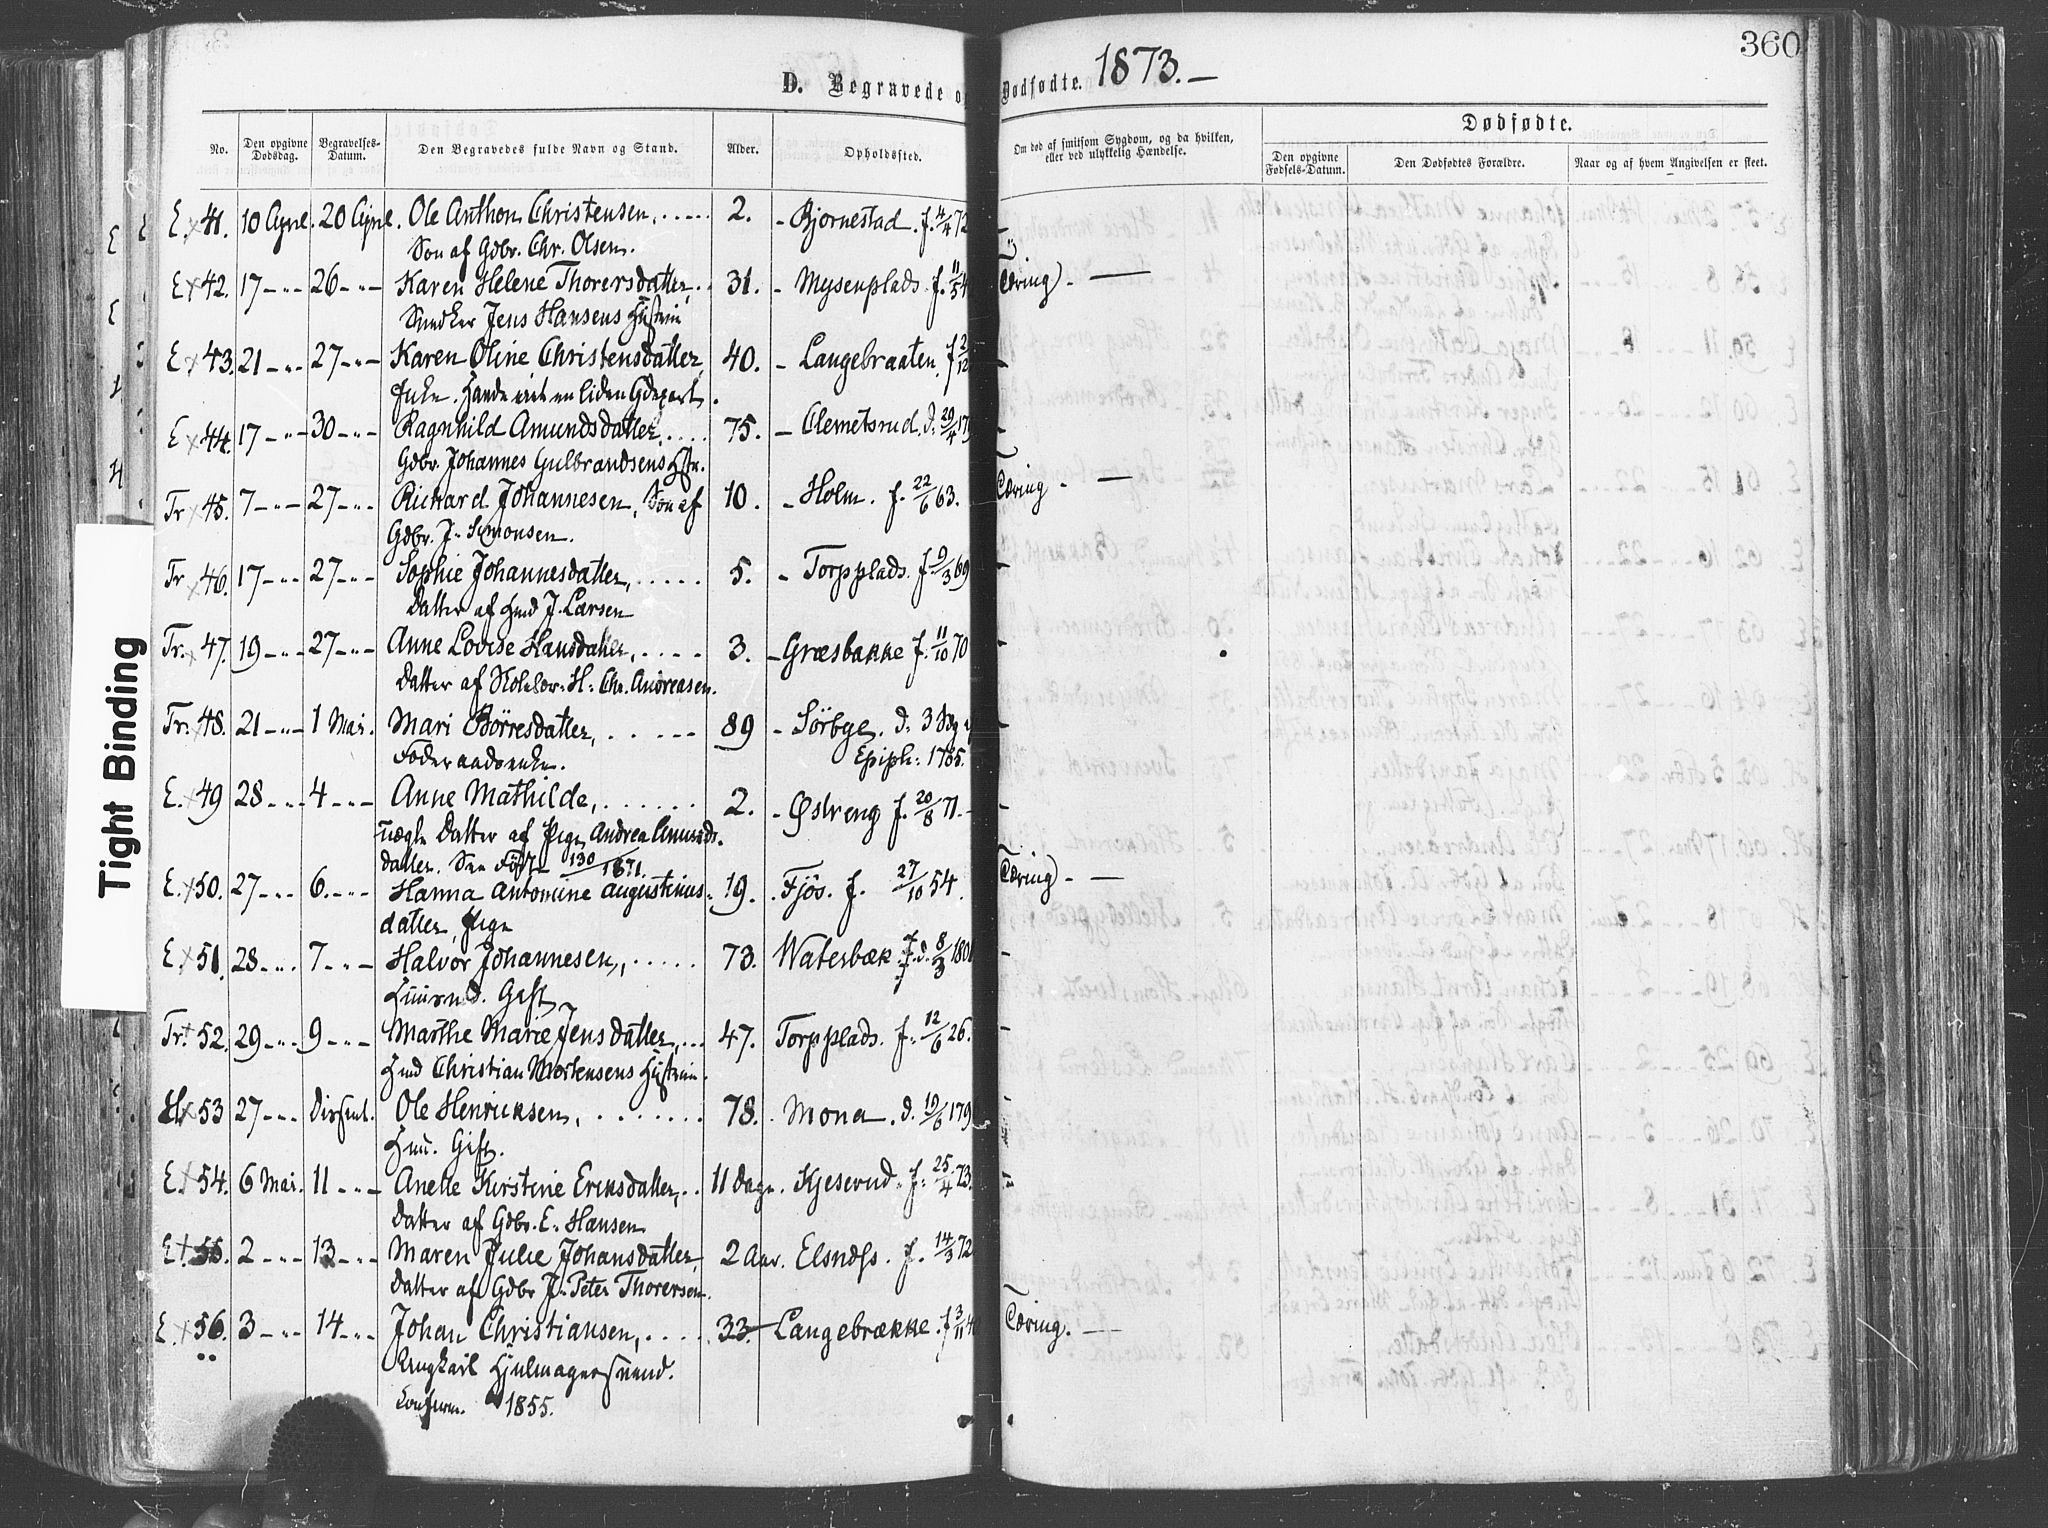 360
D. Begravede og Dødfødte. 1873.—
Dødfødte.
No. Den opgivne Dødsdag. Begravelses-Datum. Den Begravedes fulde Navn og Stand. Alder. Opholdssted. Om død af smitsom Sygdom, og da hvilken, eller ved ulykkelig Hændelse. Den opgivne Fødsels-Datum. Den Dødfødtes Forældre. Naar og af hvem Angivelsen er skeet.
E x 41. 10 April. 20 April. Ole Anthon Christensen, ..... 2. - Bjornestad. f. 4/4 72 -
Søn af Gdbr. Chr. Olsen.
E x 42. 17 -"- 26 -"- Karen Helene Thorersdatter, .. 31. - Mysenplads. f. Tæring) . —
Snedker Jens Hansens Hustru
E x 43. 21 -"- 27 -"- Karen Oline Christensdatter, 40. - Langebraaten. f -
Enke. Havde en liden Gdepart.
E x 44. 17 -"- 30 -"- Ragnhild Amundsdatter, .... 75. - Clemetsrud. d. 29/4 179 -
Gdbr. Johannes Gulbrandsens Hstr.
Tr x 45. 7 -"- 27 -"- Richard Johannesen, Søn af 10. - Holm. f. 22/6 63. Tæring . —
Gdbr. J. Simonsen.
Tr x 46. 17 -"- 27 -"- Sophie Johannesdatter, ..... 5. - Torpplads. f. 9/3 69 -
Datter af Hmd J. Larsen
Tr. x 47. 19 -"- 27 -"- Anne Lovise Hansdatter, .... 3. - Græsbakke f. 11/10 70 -
Datter af H. Chr. Andreasen.
Tr. x 48. 21 -"- 1 Mai. Mari Börresdatter, ..... 89 - Sörbye. d. 3 Sdg -
Föderaadsenke. Epiph: 1785.
E. x 49 28 -"- 4 -"- Anne Mathilde, ...... 2. - Østreng f. 20/8 71. -
uægte Datter af Pige Andrea Amunds-
datter. See Födte 130/1871.
E. x 50. 27 -"- 6. -"- Hanna Antonine Augustinus- 19. . Fjös. f. 27/10 54. Tæring) . —
datter, Pige
E. x 51. 28 -"- 7 -"- Halvor Johannesen, ..... 73. Waterbæk. d. 8/3 180 -
Huusmd. Gift
Tr. + 52. 29 -"- 9 -"- Marthe Marie Jensdatter, ... 47. Torpplads. f. 12/6 26. -
Hmd Christian Mortensens Hustru.
x 53 27 -"- Dissent. Ole Henriksen, ....... 78. . Mona. d. 19/6 179 -
Hmd. Gift.
E. x 54. 6 Mai. 11 -"- Anette Kirstine Eriksdatter, .. 11 Dage. Kjeserud. f. 25/4 73.
Datter af Gdbr. E. Hansen
E + 55. 2 -"- 13 -"- Maren Julie Johansdatter, 2 Aar. f. 14/3 72
Datter af Gdbr J. Peter Thorersen.
E. x 56. 3 -"- 14 -"- Johan Christiansen, .... 33. Langebrække. f. 3/11 Tæring. —
Ungkarl Hjulmagersvend.
Confirm. 1855.
Tight Binding